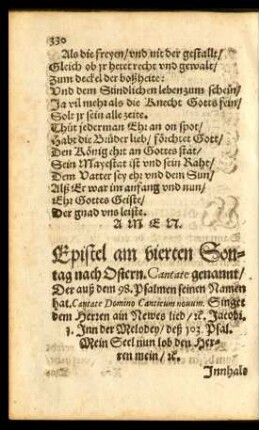 330
Als die freyen/ vnd nit der gestallt/
Gleich ob jr hetet recht vnd gewalt/
Zum deckel der boßheite:
Vnd dem Sündlichen leben zum schein/
Ja vil mehr als die Knecht Gotts fein/
Solt jr sein alle zeite.
Thüt jederman Ehr an on spot/
Habt die Brüder lieb/ förchtet Gott/
Den König ehrt an Gottes stat/
Sein Mayestat ist vnd sein Raht/
Dem Vatter sey ehr vnd dem Sun/
Alß Er war im anfang vnd nun/
Ehr Gottes Geiste/
Der gnad vns leiste.
A M E N.
Epistel am vierten Son-
tag nach Ostern. Cantate genannt/
Der auß dem 98. Psalmen seinen Namen
hat. Cantate Domino Canticum nouum. Singet
dem Herren ain Newes lied/ ꝛc. Jacobi.
1. Inn der Melodey/ deß 103. Psal.
Mein Seel nun lob den Her-
ren mein/ ꝛc.
Innhalt